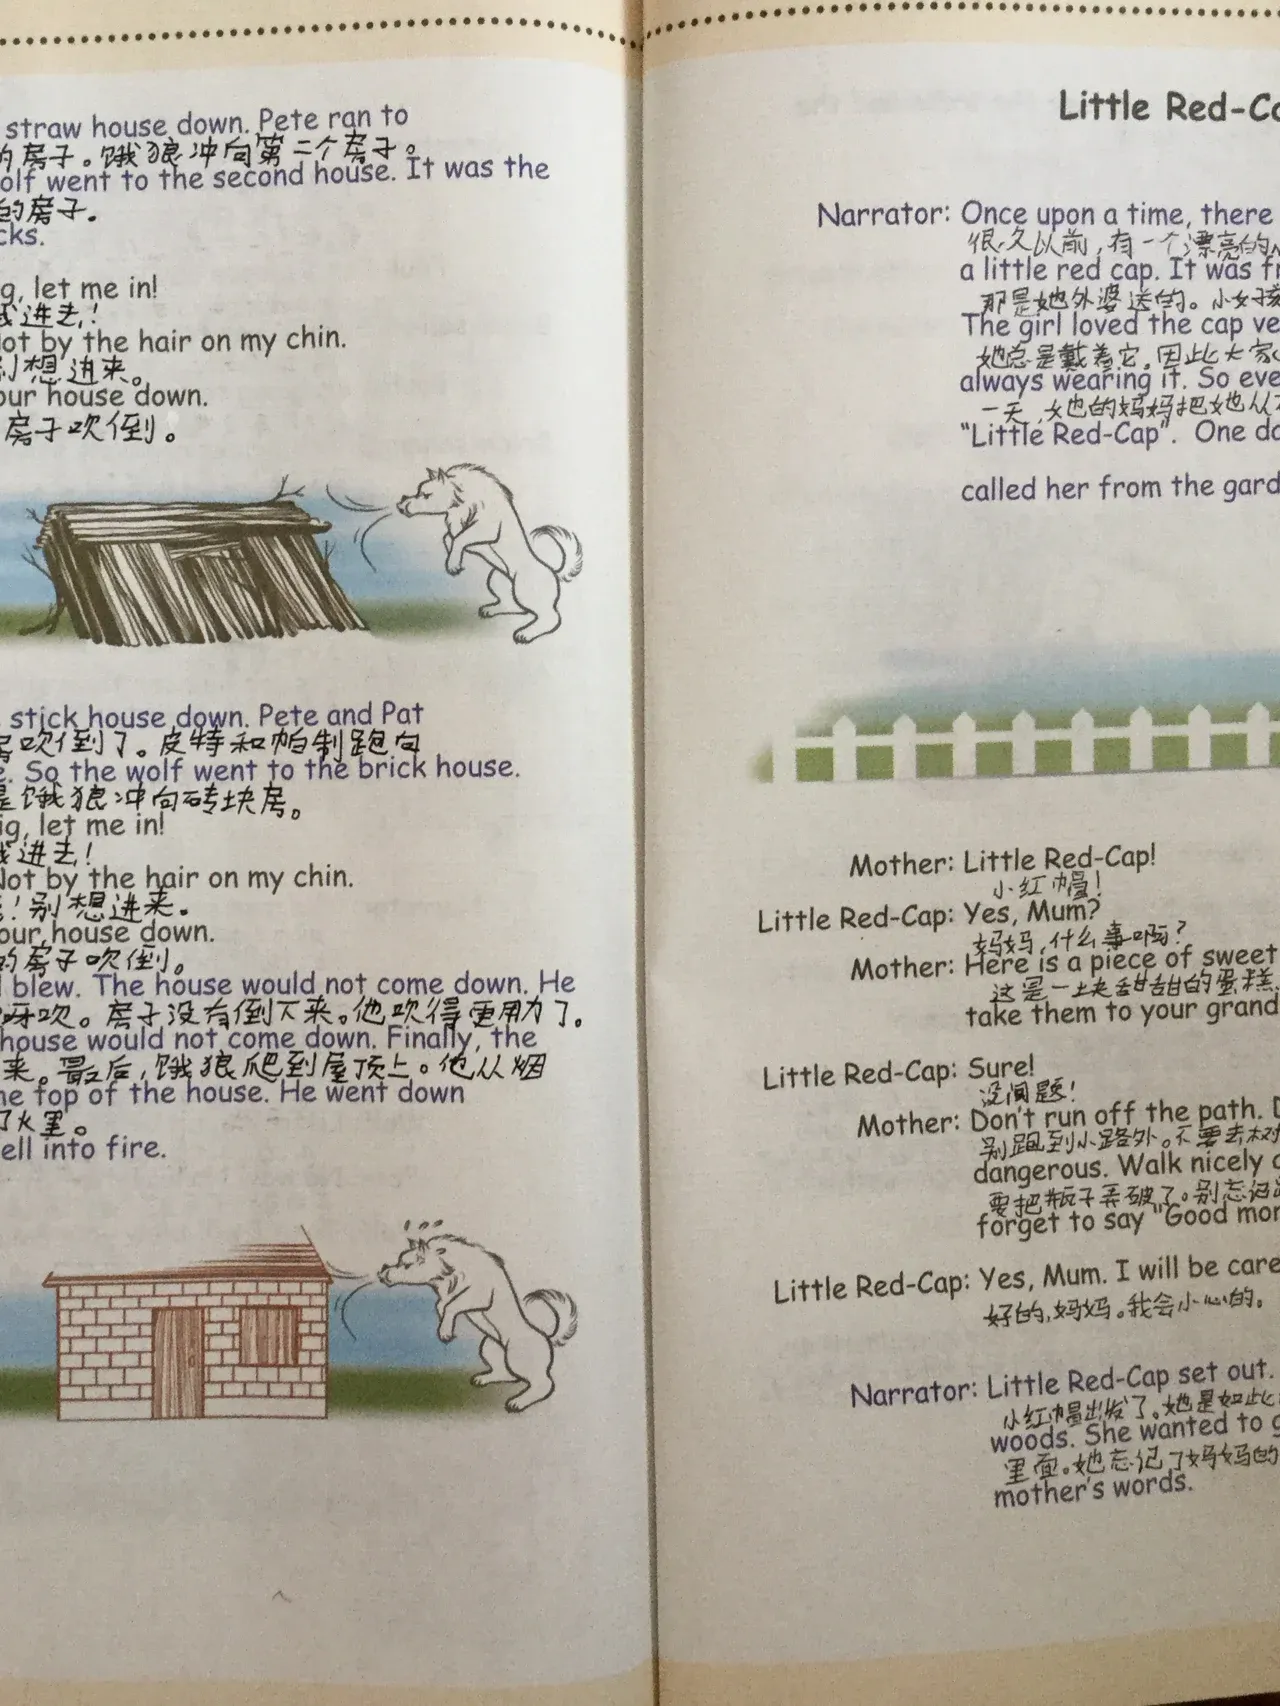 straw house down. Pete ran to
的房子。饿狼冲向第二个房子。
olf went to the second house. It was the
的房子.
cks.
g, let me in!
我进去!
Not by the hair on my chin.
别想进来。
our house down.
房子吹倒。
stick house down. Pete and Pat
吹倒了。皮特和帕制跑向
e. So the wolf went to the brick house.
是饿狼冲向砖块房。
ig, let me in!
我进去!
Not by the hair on my chin.
!别想进来.
our house down.
的房子吹倒。
d blew. The house would not come down. He
呀吹。房子没有倒下来。他吹得更用力了.
house would not come down. Finally, the
来。最后,饿狼爬到屋顶上。他从烟
he top of the house. He went down
了火里。
ell into fire.
Little Red-Ca
Narrator: Once upon a time, there
很久以前,有一个漂亮的
a little red cap. It was fr
那是她外婆送的。小女孩
The girl loved the cap ve
她总是戴着它.因此大家
always wearing it. So eve
一天,她的妈妈把她从
"Little Red-Cap". One da
called her from the gard
Mother: Little Red-Cap!
小红帽!
Little Red-Cap: Yes, Mum?
妈妈,什么事啊?
Mother: Here is a piece of sweet
这是一块甜甜的蛋糕.
take them to your grand
Little Red-Cap: Sure!
没问题!
Mother: Don't run off the path. D
别跑到小路外。不要去树
dangerous. Walk nicely a
要把瓶子弄破了。别忘记
forget to say "Good mor
Little Red-Cap: Yes, Mum. I will be care
好的,妈妈。我会小心的.
Narrator: Little Red-Cap set out.
小红帽出发了。她是如此
woods. She wanted to g
里面。她忘记了妈妈的
mother's words.